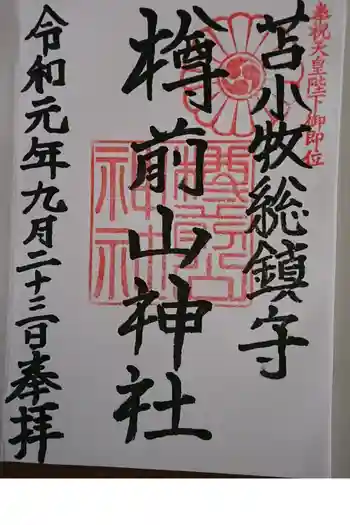 奉祝天皇陛下御即位
苫小牧総鎮守
樽前山神社
令和元年九月二十三日奉拝